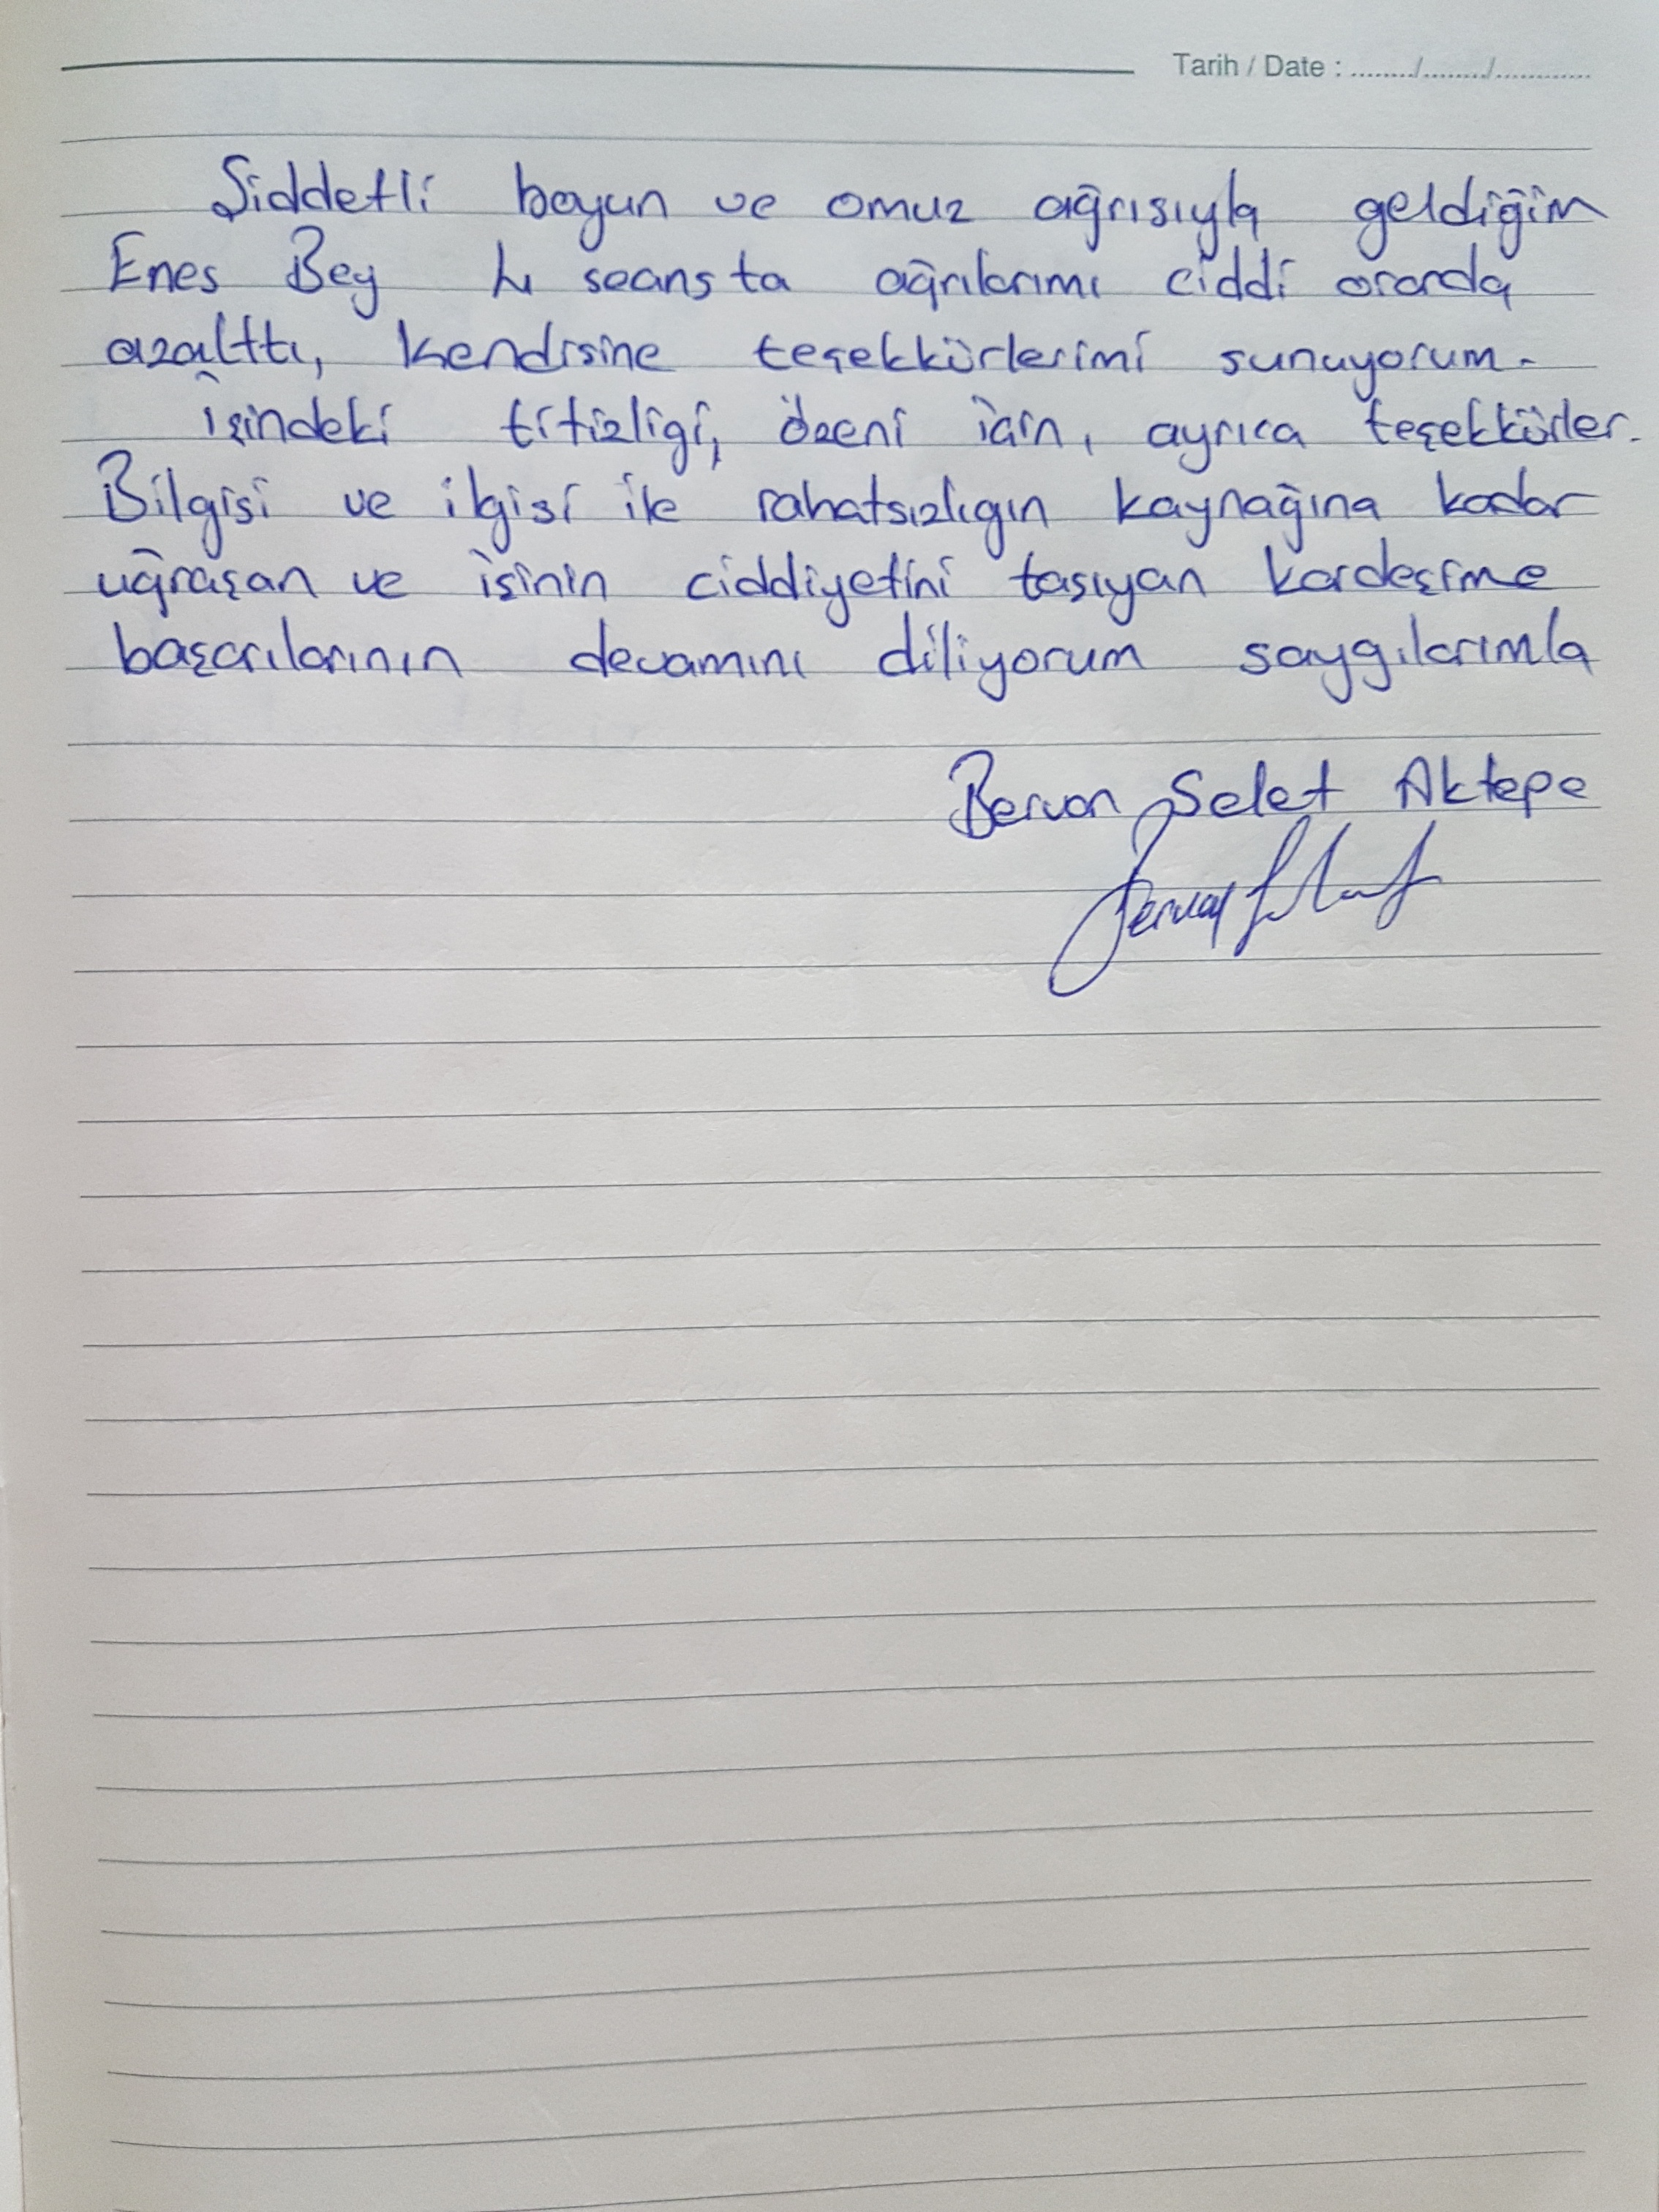 Tarih / Date : ......../......../............
Şiddetli boyun ve omuz ağrısıyla geldiğim
Enes Bey 4 seansta ağrılarımı ciddi oranda
azalttı, kendisine teşekkürlerimi sunuyorum.
işindeki titizligi, özeni için, ayrıca teşekkürler.
Bilgisi ve ilgisi ile rahatsızlıgın kaynağına kadar
uğraşan ve işinin ciddiyetini taşıyan kardeşime
başarılarının devamını diliyorum saygılarımla
Aktepe